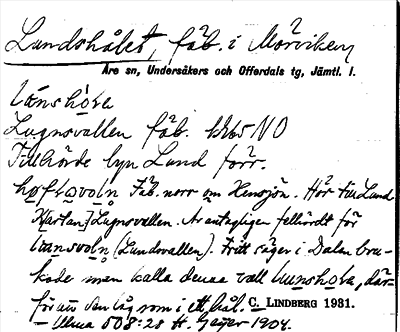 Lundshålet, fäb. i Mörviken
Åre sn, Undersåkers och Offerdals tg, Jämtl. l.
Lugnsvallen fäb. NO
Tillhörde byn Lund förr.
Fäb. norr om Hensjön. Hör till Lund
[Kartan] Lugnsvallen. Antagligen felhördt för
(Lundsvallen). Fritt sägen i Dalen bru-
kade man kalla denna vall där-
för att den låg som i ett hål. C. LINDBERG 1931.
Ulma 508:28 H. Geijer 1904.